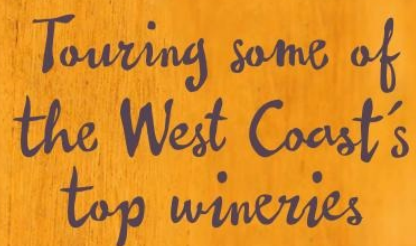 Touring some of
the West Coast´s
top wineries